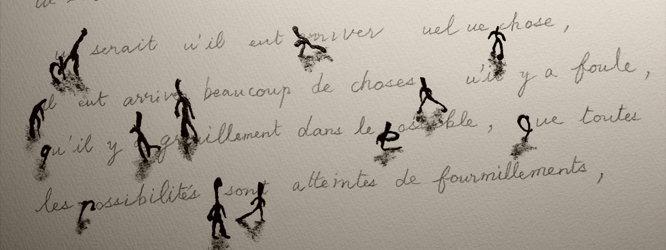 serait u'il eut arriver uel ue chose,
il eut arriver beaucoup de choses, u'il y a foule,
qu'il y grouillement dans le possible, que toutes
les possibilités sont atteintes de fourmillements,